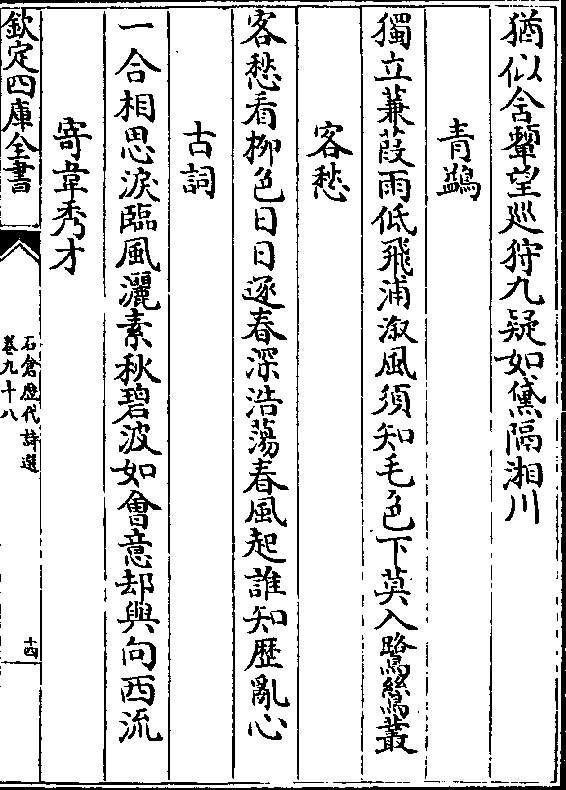 猶似含顰望巡狩九疑如黛隔湘川
青鷁
獨立蒹葭雨低飛浦漵風須知毛色下莫入鷺鷥叢
客愁
客愁看柳色日日逐春深浩蕩春風起誰知歷亂心
古詞
一合相思淚臨風灑素秋碧波如會意却與向西流
寄韋秀才
欽定四庫全書
石倉歷代詩選
卷九十八
十四